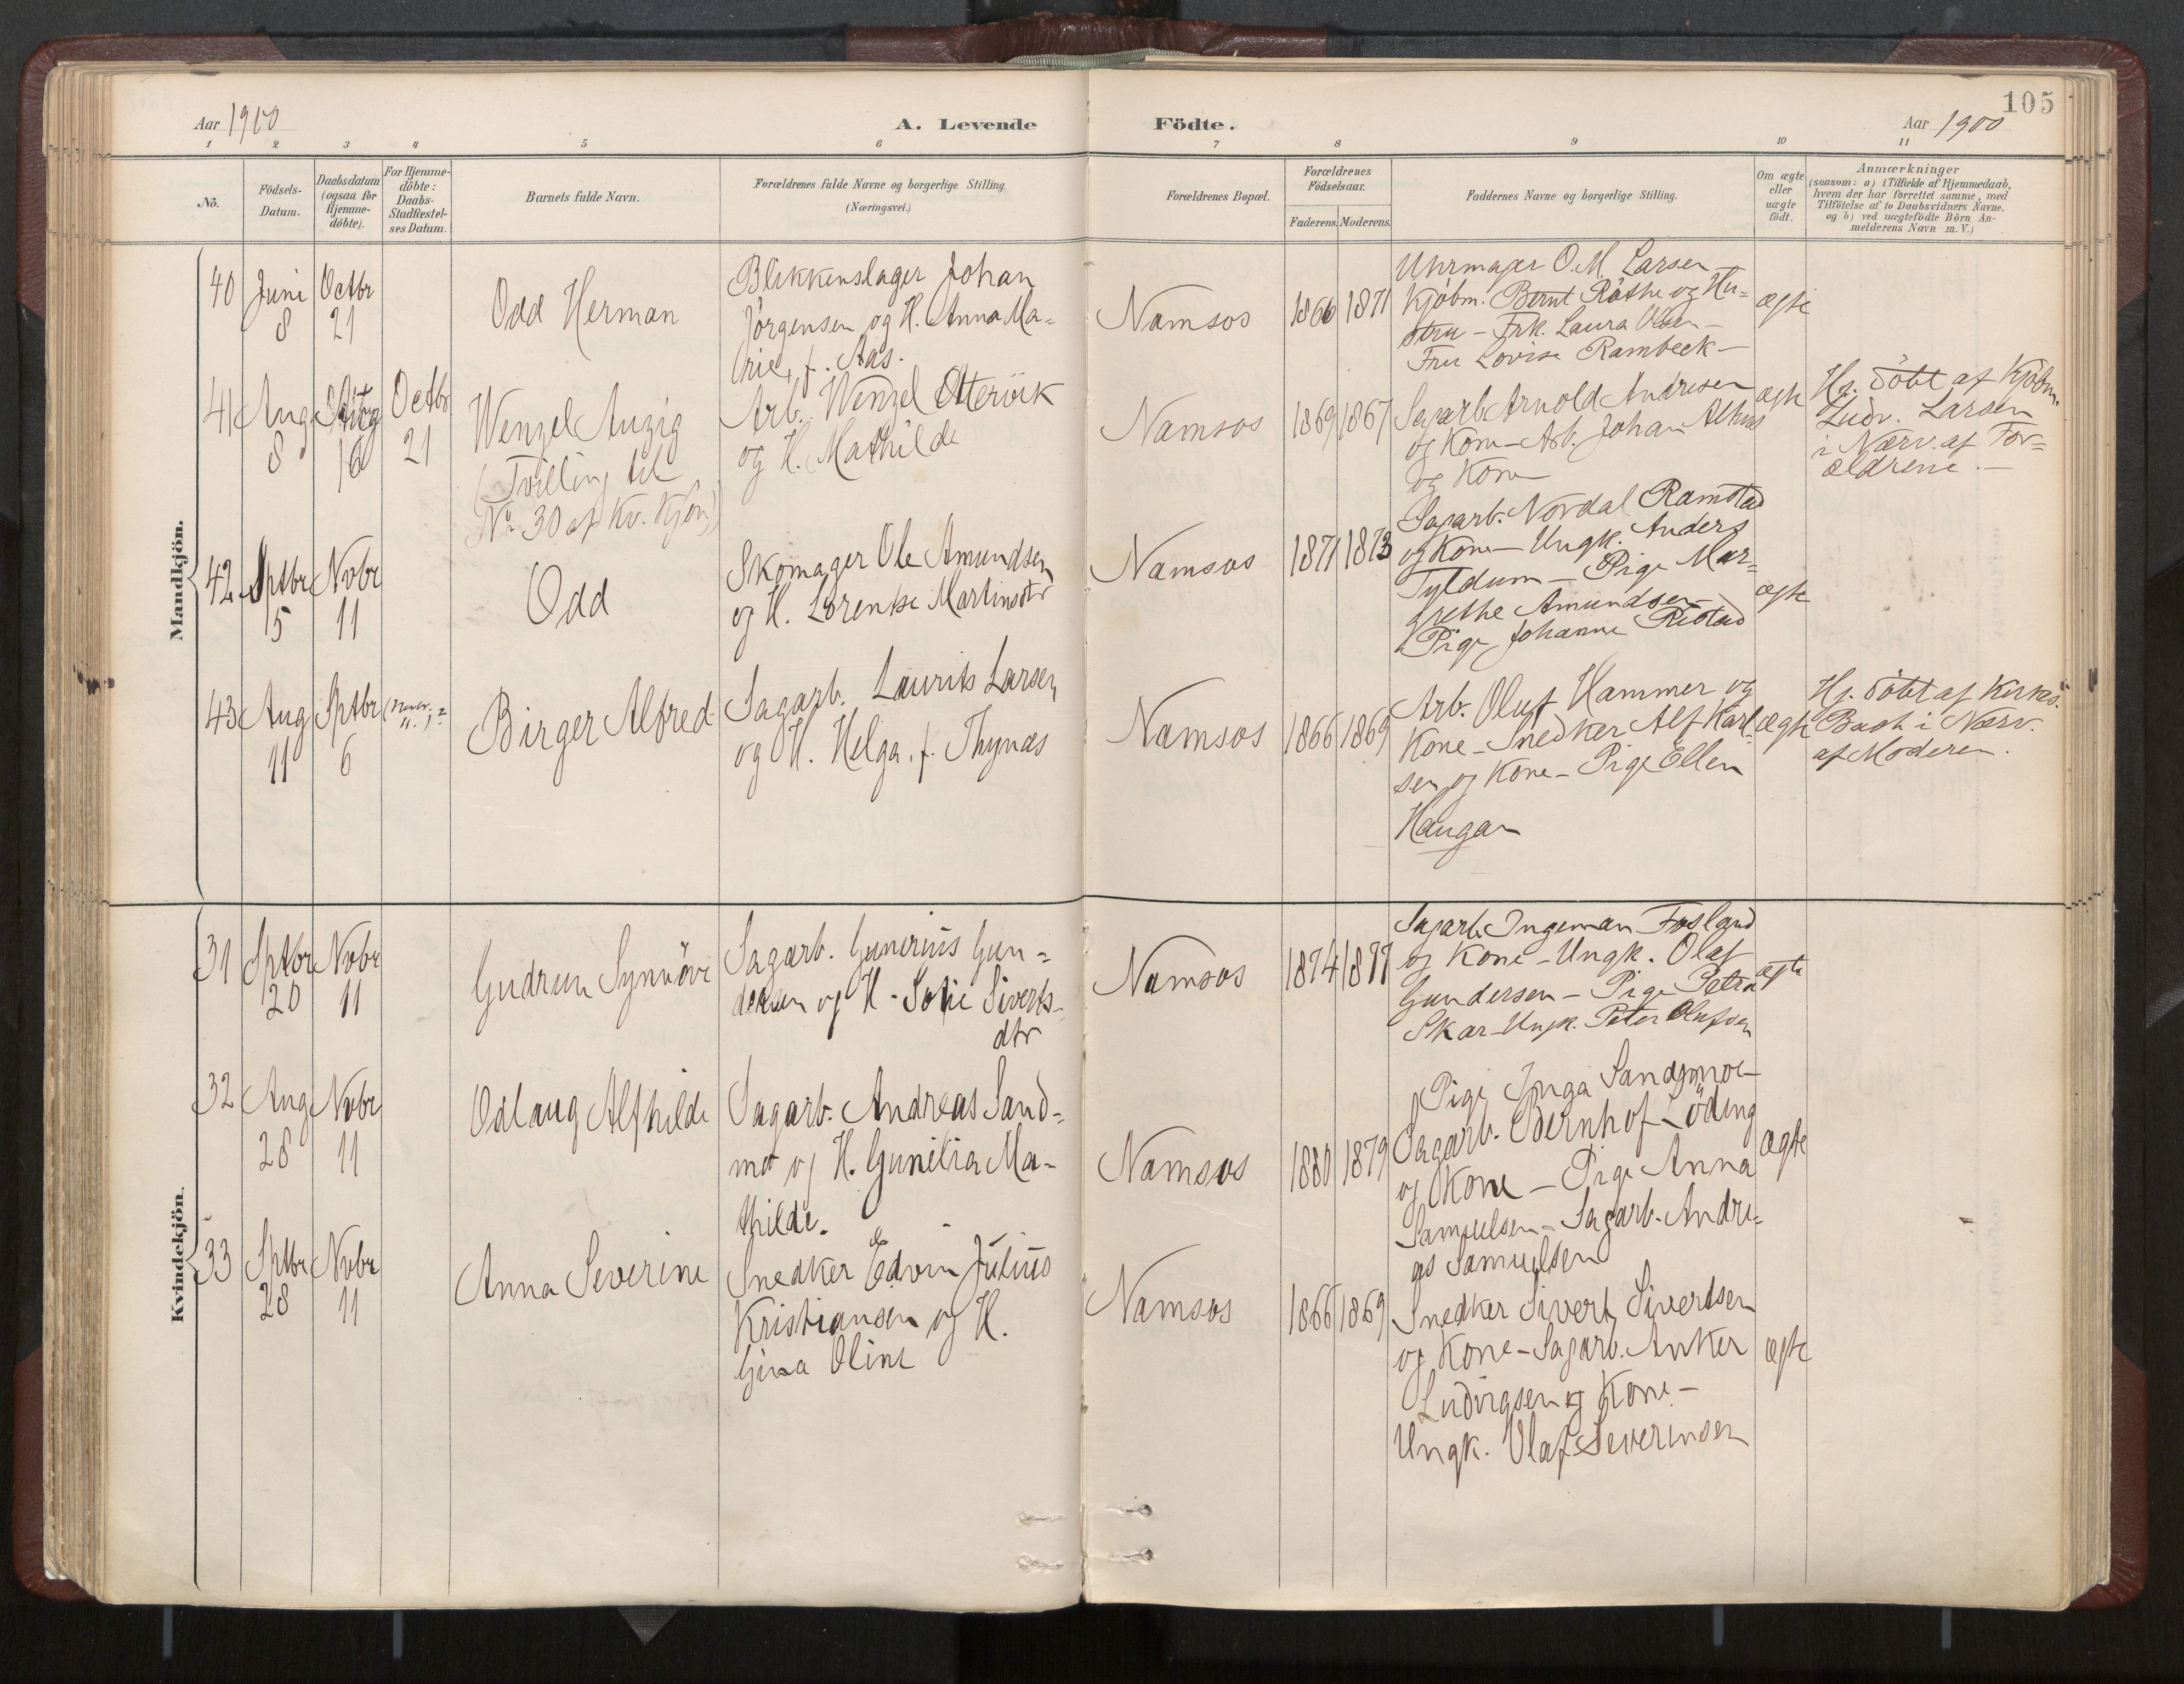 105
Aar 1900
A. Levende Födte.
Aar 1900
1 2 3 4 5 6 7 8 9 10 11
No.
Födsels-
Datum.
Daabsdatum
(ogsaa for
Hjemme-
döbte).
For Hjemme-
döbte:
Daabs-
Stadfæstel-
ses Datum.
Barnets fulde Navn.
Forældrenes fulde Navne og borgerlige Stilling.
(Næringsvei.)
Forældrenes Bopæl.
Forældrenes
Födselsaar.
Faderens. Moderens.
Faddernes Navne og borgerlige Stilling.
Om ægte
eller
uægte
födt.
Anmærkninger
(saasom: a) i Tilfælde af Hjemmedaab,
hvem der har forrettet samme, med
Tilföielse af to Daabsvidners Navne.
og b) ved uægtefödte Börn An-
melderens Navn m. V.)
Mandkjön.
40
Juni
8
Octbr
21
Odd Herman
Blikkenslager Johan
Jörgensen og H. Anna Ma-
rie, f. Aas.
Namsos
1866 1871
Uhrmager O. M. Larsen
Kjöbm. Bernt Röthe og Hu-
stru - Frk. Laura Olsen -
Fru Lovise Rambeck -
ægte
41
Aug
8
Aug
16
Octbr
21
Wenzel Auzig
(Tvilling til
No 30 af Kv. Kjön)
Arb. Wenzel Otteröik
og H. Mathilde
Namsos
1869 1867
Sagarb. Arnold Andresen
og Kone - Arb. Johan
og Kone
ægte
Hj. döbt af Kjöbm.
Ludv. Larsen
i Nærv. af For-
ældrene. -
42
Sptbr
15
Nvbr
11
Odd
Skomager Ole Amundsen
og H. Lorentse Martinsdtr
Namsos
1871 1873
Sagarb. Nordal Ramstad
og Kone - Ungk. Anders
Tyldum - Pige Mar-
grethe Amundsen -
Pige Johanne Ristad
ægte
43
Aug
11
Sptbr
6
Birger Alfred
Sagarb. Laurits Larsen
og H. Helga, f. Thynæs
Namsos
1866 1869
Arb. Oluf Hammer og
Kone - Snedker Alf Karl-
sen og Kone - Pige Ellen
Haugan
ægte
Hj. döbt af Kirkes.
Bach i Nærv.
af Moderen.
Kvindekjön.
31
Sptbr
20
Nvbr
11
Gudrun Synnöve
Sagarb. Gunerius Gun-
dersen og H. Sofie Siverts-
dtr
Namsos
1874 1877
Sagarb. Ingeman Fosland
og Kone - Ungk. Olaf
Gundersen - Pige Petra
Skar - Ungk. Peter Olufsen
ægte
32
Aug
28
Nvbr
11
Odlaug Alfhilde
Sagarb. Andreas Sand-
mo og H. Gunelia Ma-
thilde.
Namsos
1880 1879
Pige Inga Sandmoe
Sagarb. Bernhof Löding
og Kone - Pige Anna
Samuelsen - Sagarb. Andre-
as Samuelsen
ægte
33
Sptbr
28
Nvbr
11
Anna Severine
Snedker Edvin Julius
Kristiansen og H.
Gina Oline
Namsos
1866 1869
Snedker Sivert Sivertsen
og Kone - Sagarb. Anker
Ludvigsen og Kone -
Ungk. Olaf Severinsen
ægte